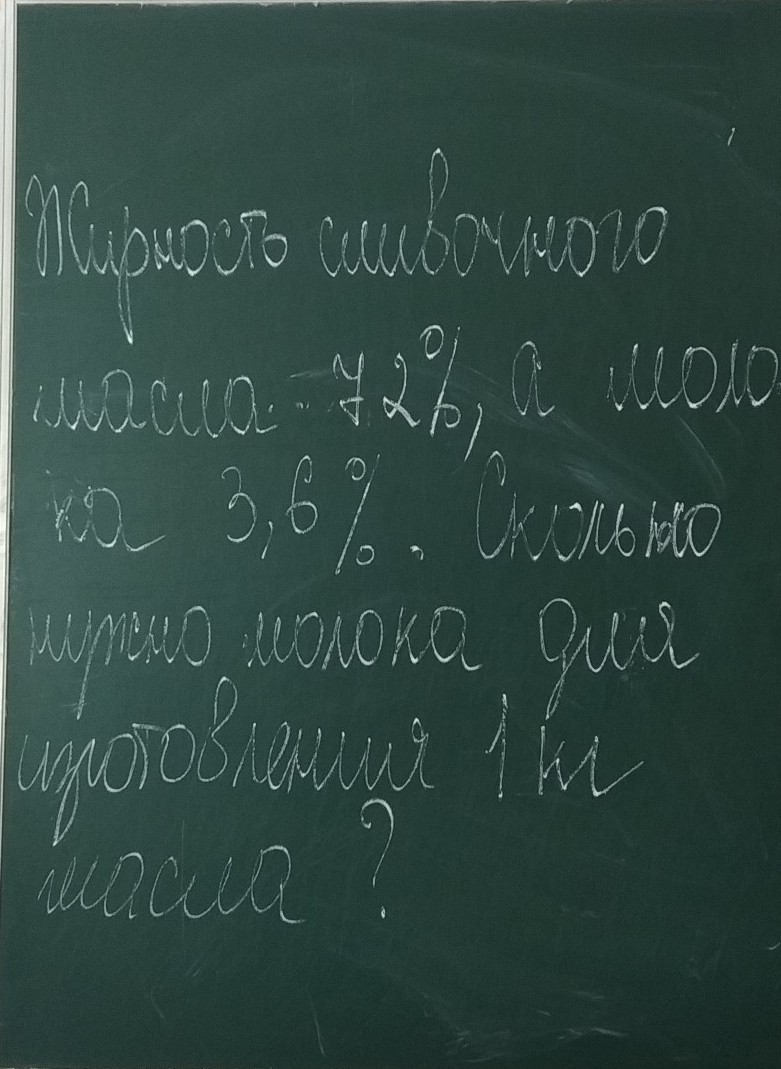 Жирность сливочного
масла 72%, а моло
ка 3,6%. Сколько
нужно молока для
изготовления 1 кг
масла?